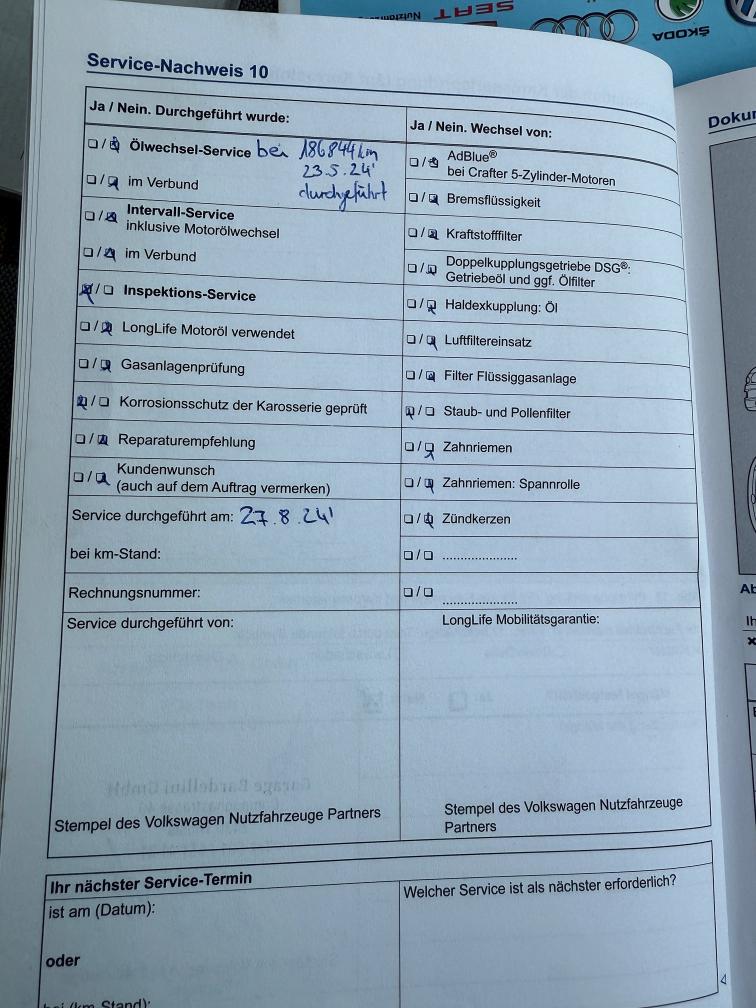 SEAT
Nutzfahrzeuge
ŠKODA
Service-Nachweis 10
Ja / Nein. Durchgeführt wurde:
Ölwechsel-Service bei 186844 km
23.5.24'
im Verbund durchgeführt
Intervall-Service
inklusive Motorölwechsel
im Verbund
Inspektions-Service
LongLife Motoröl verwendet
Gasanlagenprüfung
Korrosionsschutz der Karosserie geprüft
Reparaturempfehlung
Kundenwunsch
(auch auf dem Auftrag vermerken)
Service durchgeführt am: 27.8.24'
bei km-Stand:
Rechnungsnummer:
Service durchgeführt von:
Stempel des Volkswagen Nutzfahrzeuge Partners
Ja / Nein. Wechsel von:
AdBlue®
bei Crafter 5-Zylinder-Motoren
Bremsflüssigkeit
Kraftstofffilter
Doppelkupplungsgetriebe DSG®:
Getriebeöl und ggf. Ölfilter
Haldexkupplung: Öl
Luftfiltereinsatz
Filter Flüssiggasanlage
Staub- und Pollenfilter
Zahnriemen
Zahnriemen: Spannrolle
Zündkerzen
....................
....................
LongLife Mobilitätsgarantie:
Stempel des Volkswagen Nutzfahrzeuge
Partners
Ihr nächster Service-Termin
ist am (Datum):
oder
bei (km-Stand):
Welcher Service ist als nächster erforderlich?
Garage Bardellini GmbH